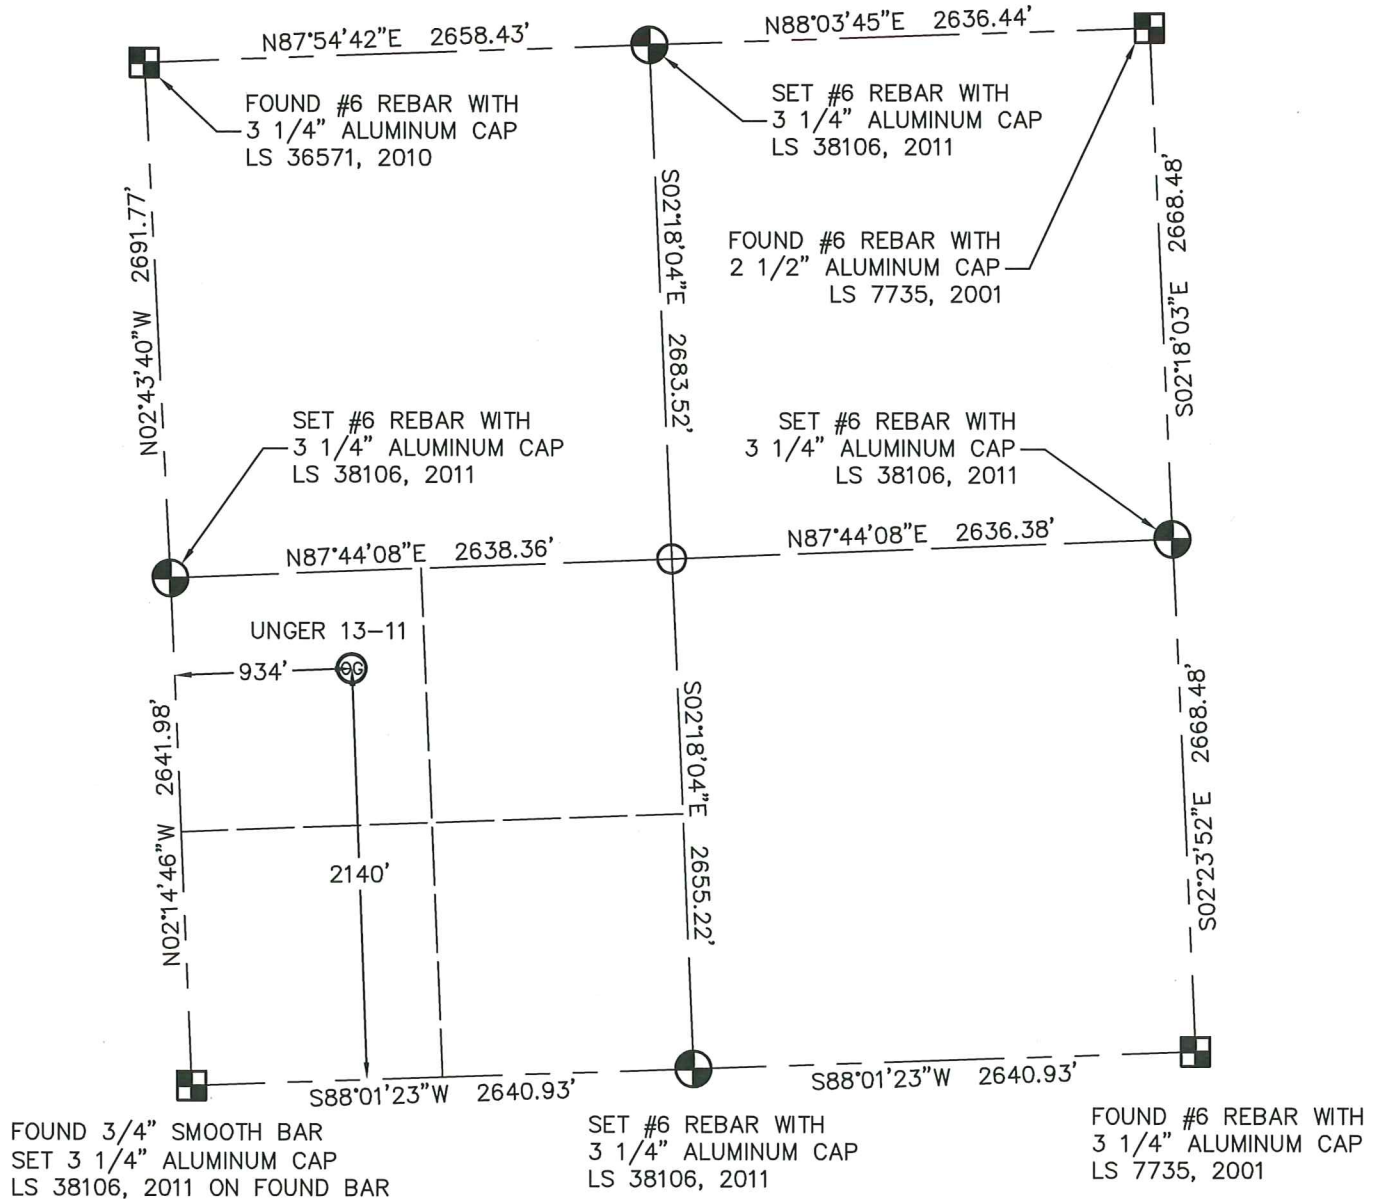 N87°54'42"E 2658.43'
N88°03'45"E 2636.44'
FOUND #6 REBAR WITH
3 1/4" ALUMINUM CAP
LS 36571, 2010
SET #6 REBAR WITH
3 1/4" ALUMINUM CAP
LS 38106, 2011
FOUND #6 REBAR WITH
2 1/2" ALUMINUM CAP
LS 7735, 2001
N02°43'40"W 2691.77'
S02°18'04"E 2683.52'
S02°18'03"E 2668.48'
SET #6 REBAR WITH
3 1/4" ALUMINUM CAP
LS 38106, 2011
SET #6 REBAR WITH
3 1/4" ALUMINUM CAP
LS 38106, 2011
N87°44'08"E 2638.36'
N87°44'08"E 2636.38'
UNGER 13-11
OG
934'
2140'
N02°14'46"W 2641.98'
S02°18'04"E 2655.22'
S02°23'52"E 2668.48'
S88°01'23"W 2640.93'
S88°01'23"W 2640.93'
FOUND 3/4" SMOOTH BAR
SET 3 1/4" ALUMINUM CAP
LS 38106, 2011 ON FOUND BAR
SET #6 REBAR WITH
3 1/4" ALUMINUM CAP
LS 38106, 2011
FOUND #6 REBAR WITH
3 1/4" ALUMINUM CAP
LS 7735, 2001